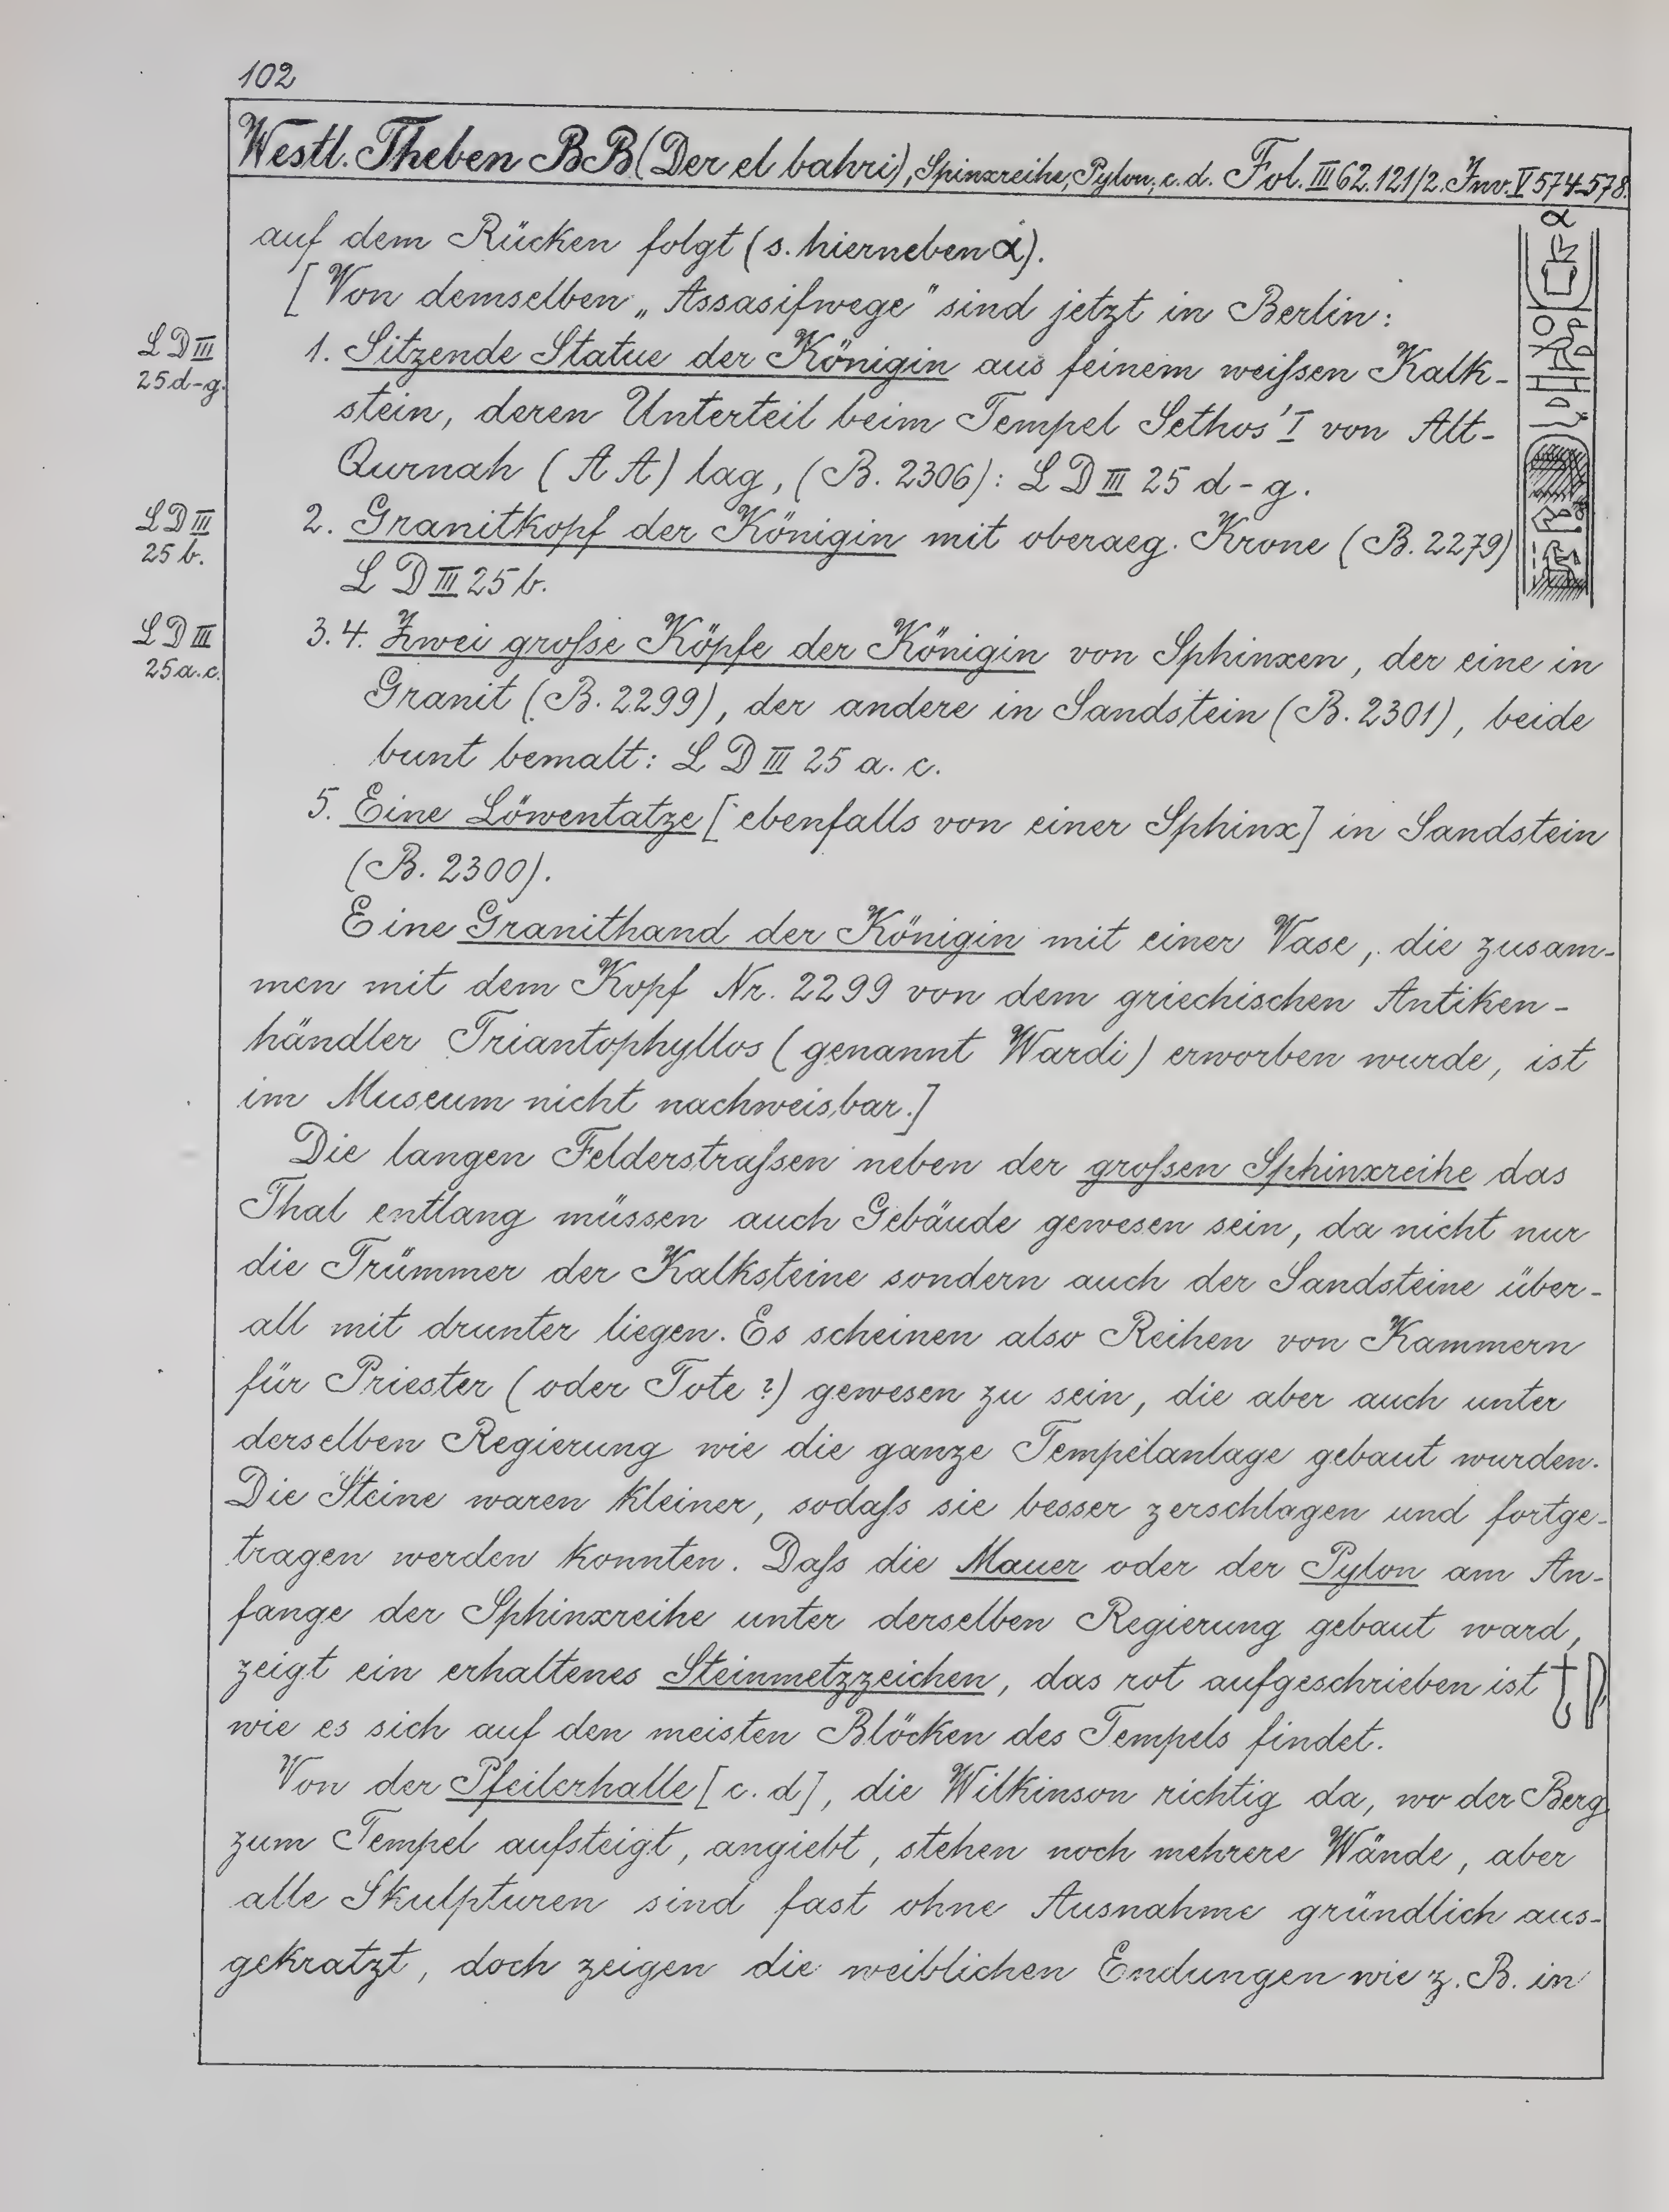 102
Westl. Theben BB (Der el bahri), Spinxreihe, Pylon, c. d. Fol. III 62. 121/2. Inv. V 574-578.
auf dem Rücken folgt (s. hierneben α).
α
[Von demselben „Assasifwege" sind jetzt in Berlin:
LD III
25 d-g.
1. Sitzende Statue der Königin aus feinem weißen Kalk-
stein, deren Unterteil beim Tempel Sethos' I von Alt-
Qurnah (AA) lag, (B. 2306): LD III 25 d-g.
LD III
25 b.
2. Granitkopf der Königin mit oberaeg. Krone (B. 2279)
LD III 25 b.
LD III
25 a. c.
3. 4. Zwei große Köpfe der Königin von Sphinxen, der eine in
Granit (B. 2299), der andere in Sandstein (B. 2301), beide
bunt bemalt: LD III 25 a. c.
5. Eine Löwentatze [ebenfalls von einer Sphinx] in Sandstein
(B. 2300).
Eine Granithand der Königin mit einer Vase, die zusam-
men mit dem Kopf Nr. 2299 von dem griechischen Antiken-
händler Triantophyllos (genannt Wardi) erworben wurde, ist
im Museum nicht nachweisbar.]
Die langen Felderstraßen neben der großen Sphinxreihe das
Thal entlang müssen auch Gebäude gewesen sein, da nicht nur
die Trümmer der Kalksteine sondern auch der Sandsteine über-
all mit drunter liegen. Es scheinen also Reihen von Kammern
für Priester (oder Tote?) gewesen zu sein, die aber auch unter
derselben Regierung wie die ganze Tempelanlage gebaut wurden.
Die Steine waren kleiner, sodaß sie besser zerschlagen und fortge-
tragen werden konnten. Daß die Mauer oder der Pylon am An-
fange der Sphinxreihe unter derselben Regierung gebaut ward,
zeigt ein erhaltenes Steinmetzzeichen, das rot aufgeschrieben ist
wie es sich auf den meisten Blöcken des Tempels findet.
Von der Pfeilerhalle [c. d], die Wilkinson richtig da, wo der Berg
zum Tempel aufsteigt, angiebt, stehen noch mehrere Wände, aber
alle Skulpturen sind fast ohne Ausnahme gründlich aus-
gekratzt, doch zeigen die weiblichen Endungen wie z. B. in